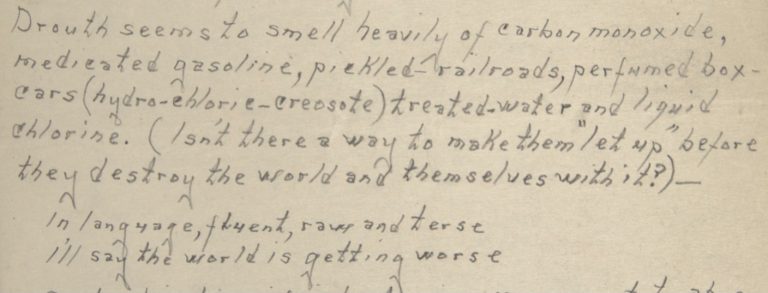 Drouth seems to smell heavily of carbon monoxide,
medicated gasoline, pickled-railroads, perfumed box-
cars (hydro-chloric-creosote) treated-water and liquid
chlorine. (Isn't there a way to make them "let up" before
they destroy the world and themselves with it?)—
In language, fluent, raw and terse
I'll say the world is getting worse